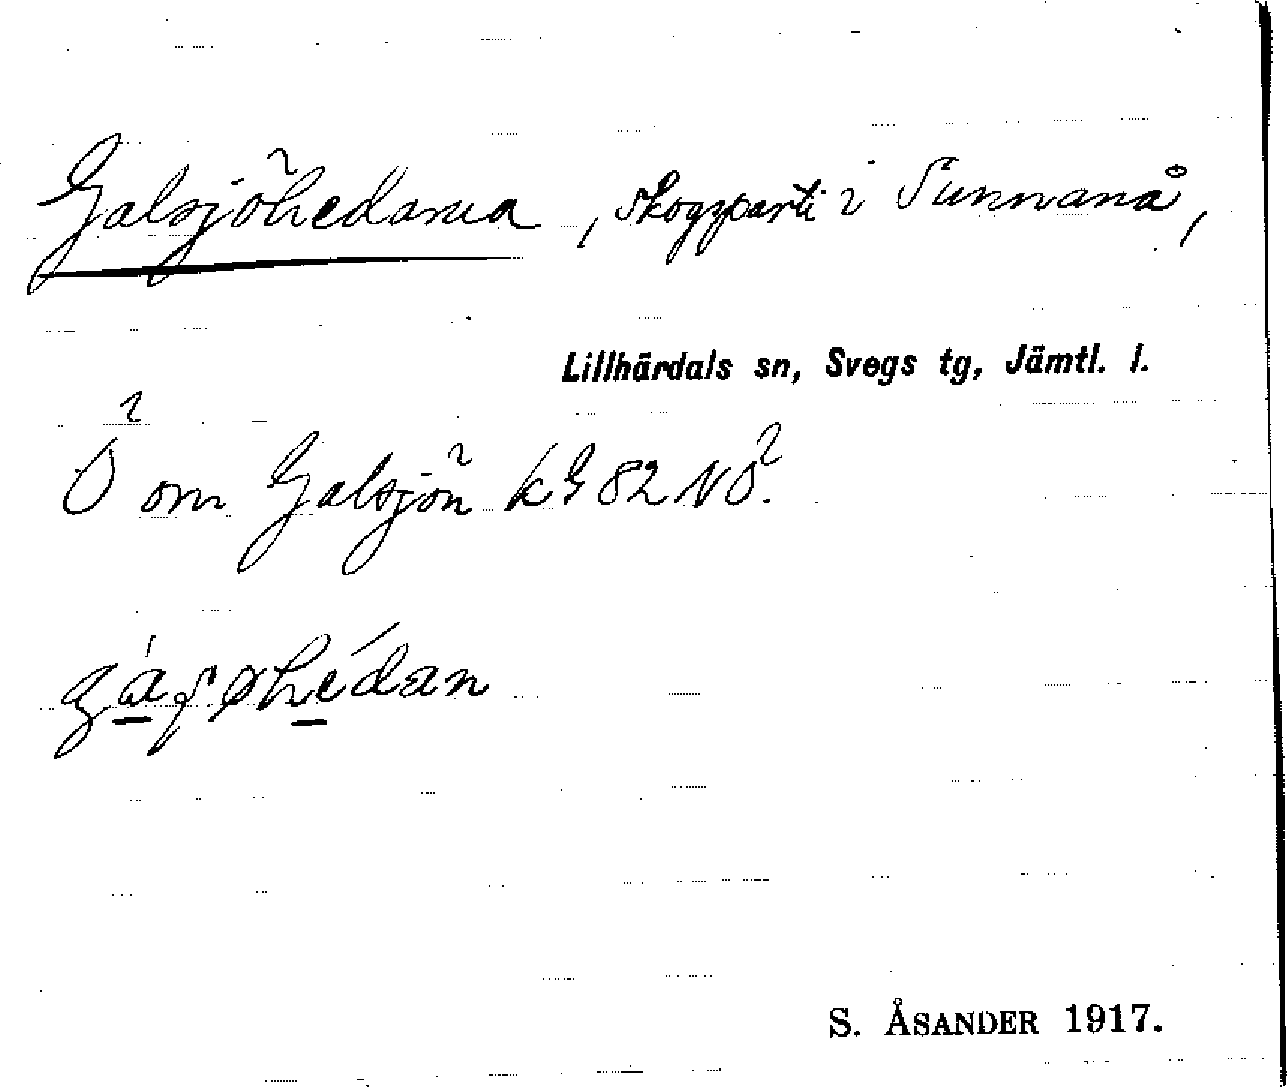 Galsjöhedarna, skogsparti i Sunnanå,
Lillhärdals sn, Svegs tg, Jämtl. l.
Ö om Galsjön kG 82 NÖ.
S. ÅSANDER 1917.